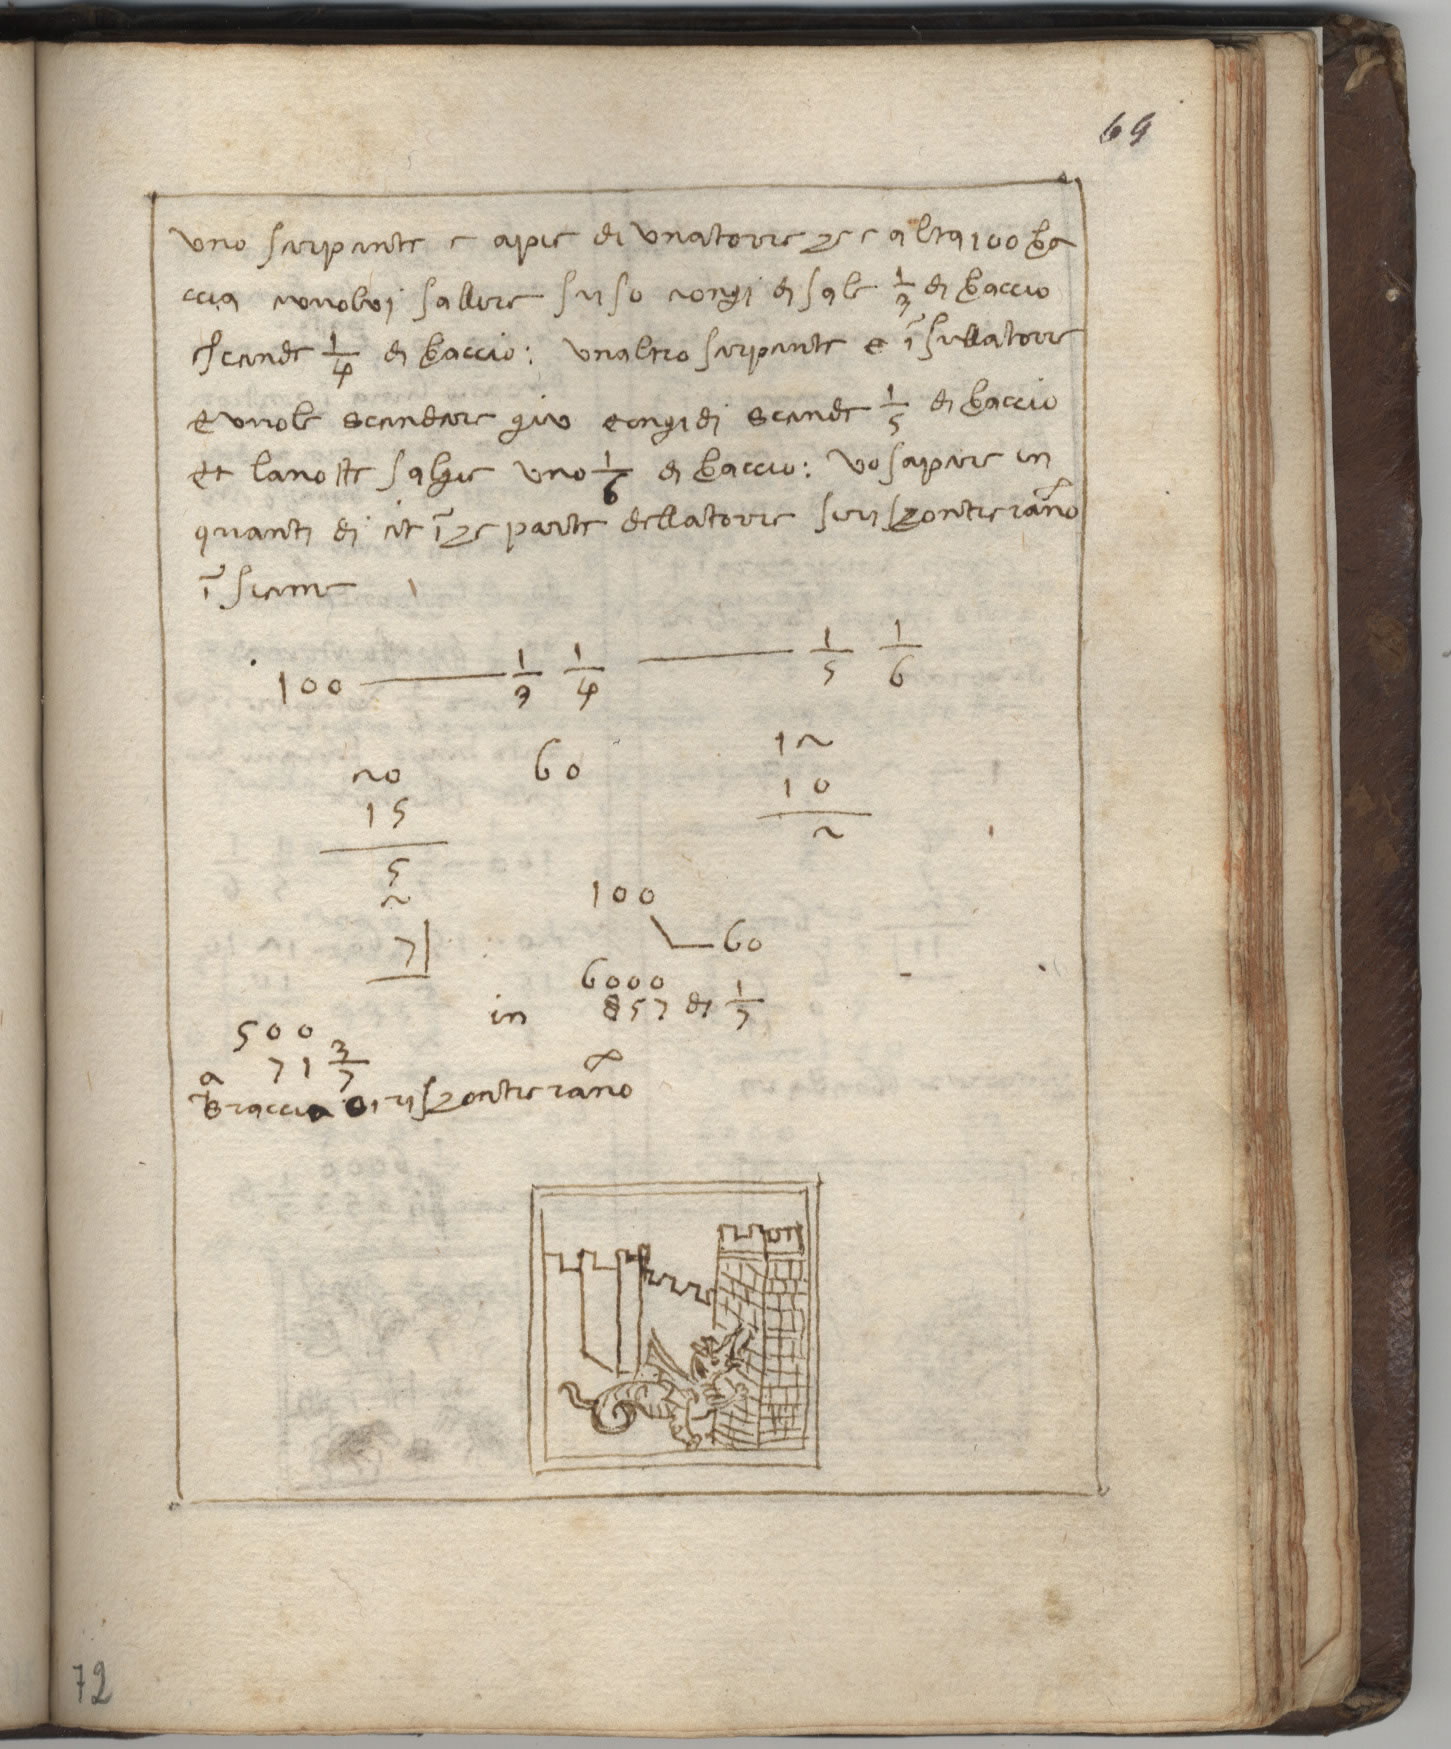 69
uno serpente e apie di una torre che e alta 100 bra
ccia e vuolvi sallire suso e ongi di sale 1/3 di braccio
e scende 1/4 di braccio: unaltro serpente e ī sullatorre
e vuole scendere giu e ongi di scende 1/5 di braccio
et lanotte salgie uno 1/6 di braccio: vo sapere in
quanti di et ī che parte dellatorre si rischontrerāno
ī sieme
100 — 1/3 1/4 — 1/5 1/6
20 60 12
15 10
5 2
2 100
7 60
6000
in 857 di 1/7
500
71 3/7
a
braccia si rischontrerāno
72